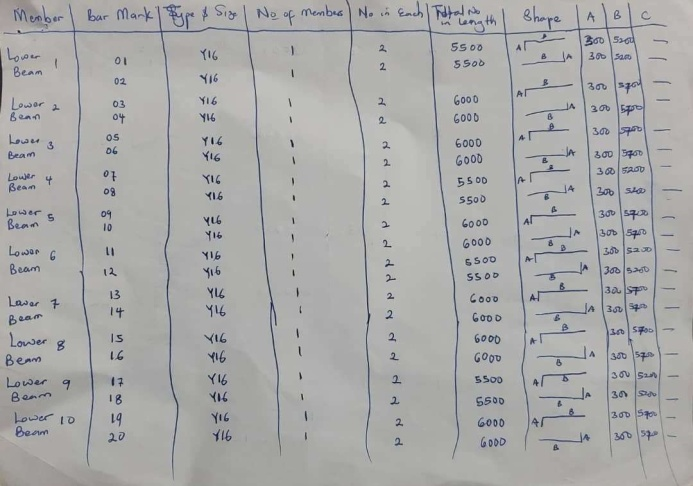 Member Bar Mark Type & Size No of member No in Each Total No in Length Shape A B C
Lower Beam 1 01 Y16 1 2 5500 A B 300 5200 —
02 Y16 1 2 5500 B A 300 5200 —
Lower Beam 2 03 Y16 1 2 6000 A B 300 5700 —
04 Y16 1 2 6000 B A 300 5700 —
Lower Beam 3 05 Y16 1 2 6000 A B 300 5700 —
06 Y16 1 2 6000 B A 300 5700 —
Lower Beam 4 07 Y16 1 2 5500 A B 300 5200 —
08 Y16 1 2 5500 B A 300 5200 —
Lower Beam 5 09 Y16 1 2 6000 A B 300 5700 —
10 Y16 1 2 6000 B A 300 5700 —
Lower Beam 6 11 Y16 1 2 5500 A B 300 5200 —
12 Y16 1 2 5500 B A 300 5200 —
Lower Beam 7 13 Y16 1 2 6000 A B 300 5700 —
14 Y16 1 2 6000 B A 300 5700 —
Lower Beam 8 15 Y16 1 2 6000 A B 300 5700 —
16 Y16 1 2 6000 B A 300 5700 —
Lower Beam 9 17 Y16 1 2 5500 A B 300 5200 —
18 Y16 1 2 5500 B A 300 5200 —
Lower Beam 10 19 Y16 1 2 6000 A B 300 5700 —
20 Y16 1 2 6000 B A 300 5700 —